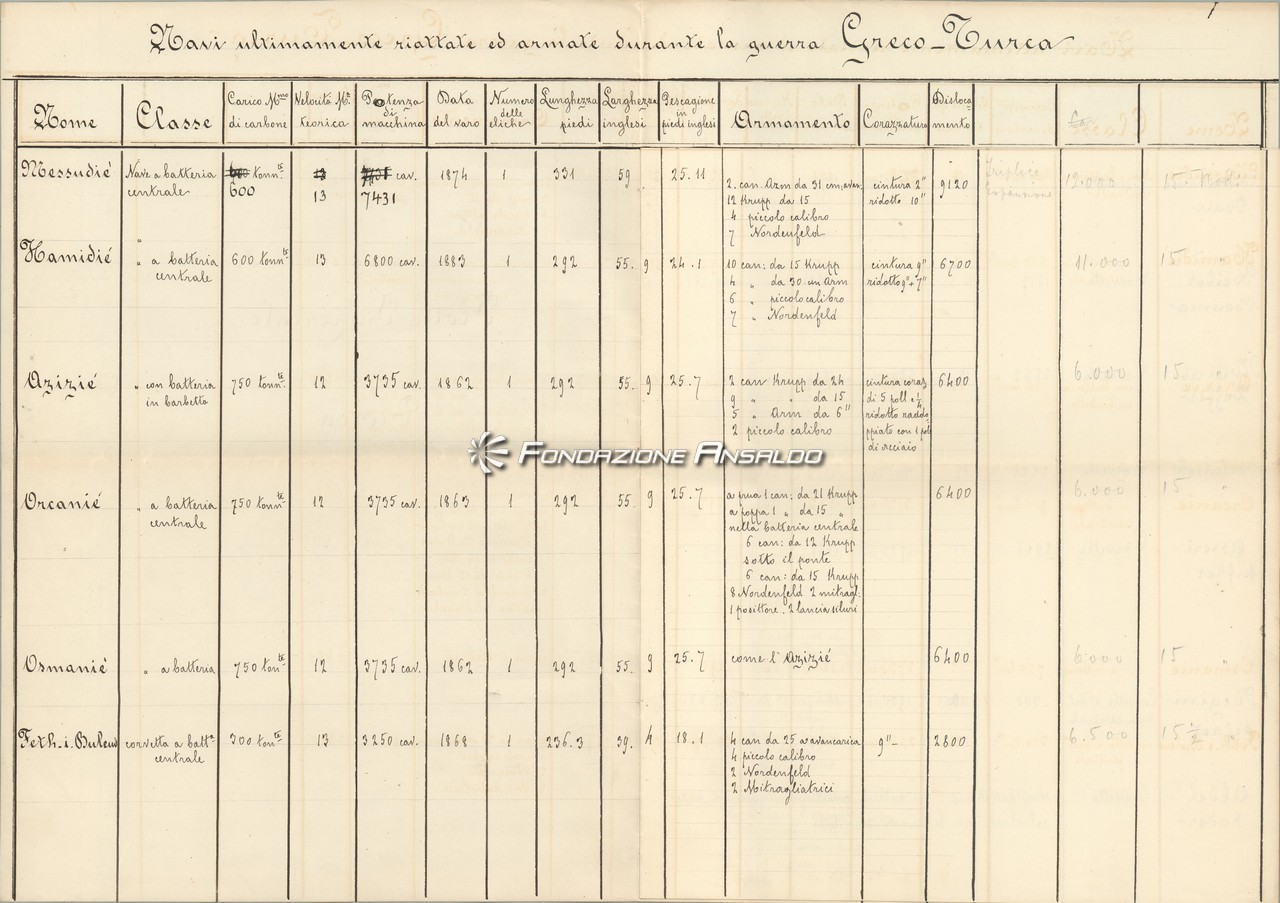 1
Navi ultimamente riattate ed armate durante la guerra Greco-Turca
Nome | Classe | Carico Mmo di carbone | Velocità Ma teorica | Potenza di macchina | Data del varo | Numero delle eliche | Lunghezza piedi | Larghezza inglesi | Pescagione in piedi inglesi | Armamento | Corazzatura | Dislocamento
Messudié | Nave a batteria centrale | tonnte 600 | 13 13 | cav. 7431 | 1874 | 1 | 331 | 59 „ | 25.11 | 9120 | Triplice Espansione | 12.000 | 15
2. can. Arm da 31 cm, avan.
12 Krupp da 15
4 piccolo calibro
7 Nordenfeld
cintura 2"
ridotto 10"
Hamidié | „ a batteria centrale | 600 tonnte | 13 | 6800 cav. | 1883 | 1 | 292 | 55. 9 | 24.1 | 6700 | 11.000 | 15
10 can: da 15 Krupp
4 „ da 30 cm Arm
6 „ piccolo calibro
7 „ Nordenfeld
cintura 9"
ridotto 9" + 7"
Azizié | „ con batteria in barbetta | 750 tonnte | 12 | 3735 cav. | 1862 | 1 | 292 | 55. 9 | 25.7 | 6400 | 6.000 | 15
2 can Krupp da 24
9 „ „ da 15
5 „ Arm da 6"
2 piccolo calibro
cintura coraz
di 5 poll e 1/4
ridotto raddo
ppiato con 1 poll
di acciaio
FONDAZIONE ANSALDO
Orcanié | „ a batteria centrale | 750 tonnte | 12 | 3735 cav. | 1863 | 1 | 292 | 55 9 | 25.7 | 6400 | 6.000 | 15
a prua 1 can: da 21 Krupp
a poppa 1 „ da 15 „
nella batteria centrale
6 can: da 12 Krupp
sotto il ponte
6 can: da 15 Krupp
8 Nordenfeld 2 mitragl:
2 lancia siluri
Osmanié | „ a batteria | 750 tonte | 12 | 3735 cav. | 1862 | 1 | 292 | 55. 9 | 25.7 | come l'Azizié | 6400 | 6000 | 15
Feth-i-Bulend | corvetta a batta centrale | 300 tonte | 13 | 3250 cav. | 1868 | 1 | 236.3 | 39. 4 | 18.1 | 9"- | 2800 | 6.500 | 15 1/2
4 can da 25 a avancarica
4 piccolo calibro
2 Nordenfeld
2 Mitragliatrici